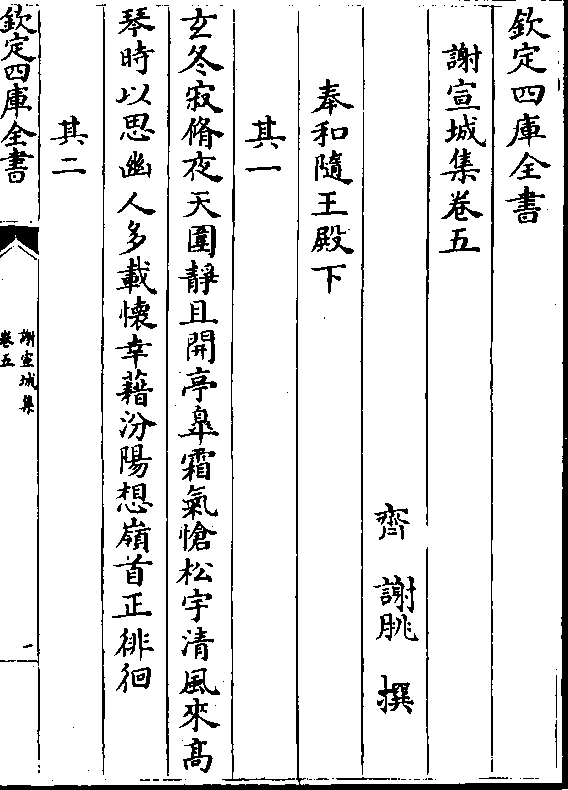 欽定四庫全書
謝宣城集卷五
齊 謝朓 撰
奉和隨王殿下
其一
玄冬寂脩夜天圍靜且開亭臯霜氣愴松宇清風來髙
琴時以思幽人多載懷幸藉汾陽想嶺首正徘徊
其二
欽定四庫全書
謝宣城集
卷五
一